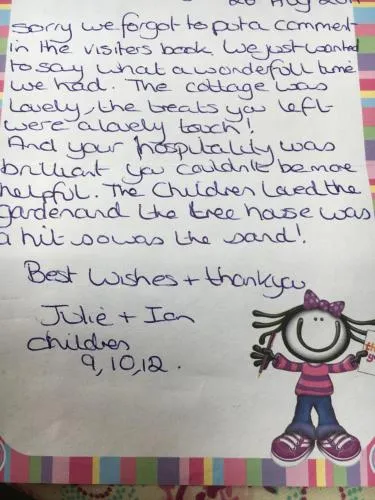 sorry we forgot to put a comment
in the visiters book. We just wanted
to say what a wonderfull time
we had. The cottage was
lovely, the treats you left
were a lovely touch!
And your hospitality was
brilliant you couldn't be more
helpful. The Children loved the
garden and the tree house was
a hit so was the sand!
Best Wishes + thankyou
Julie + Ian
children
9, 10, 12.